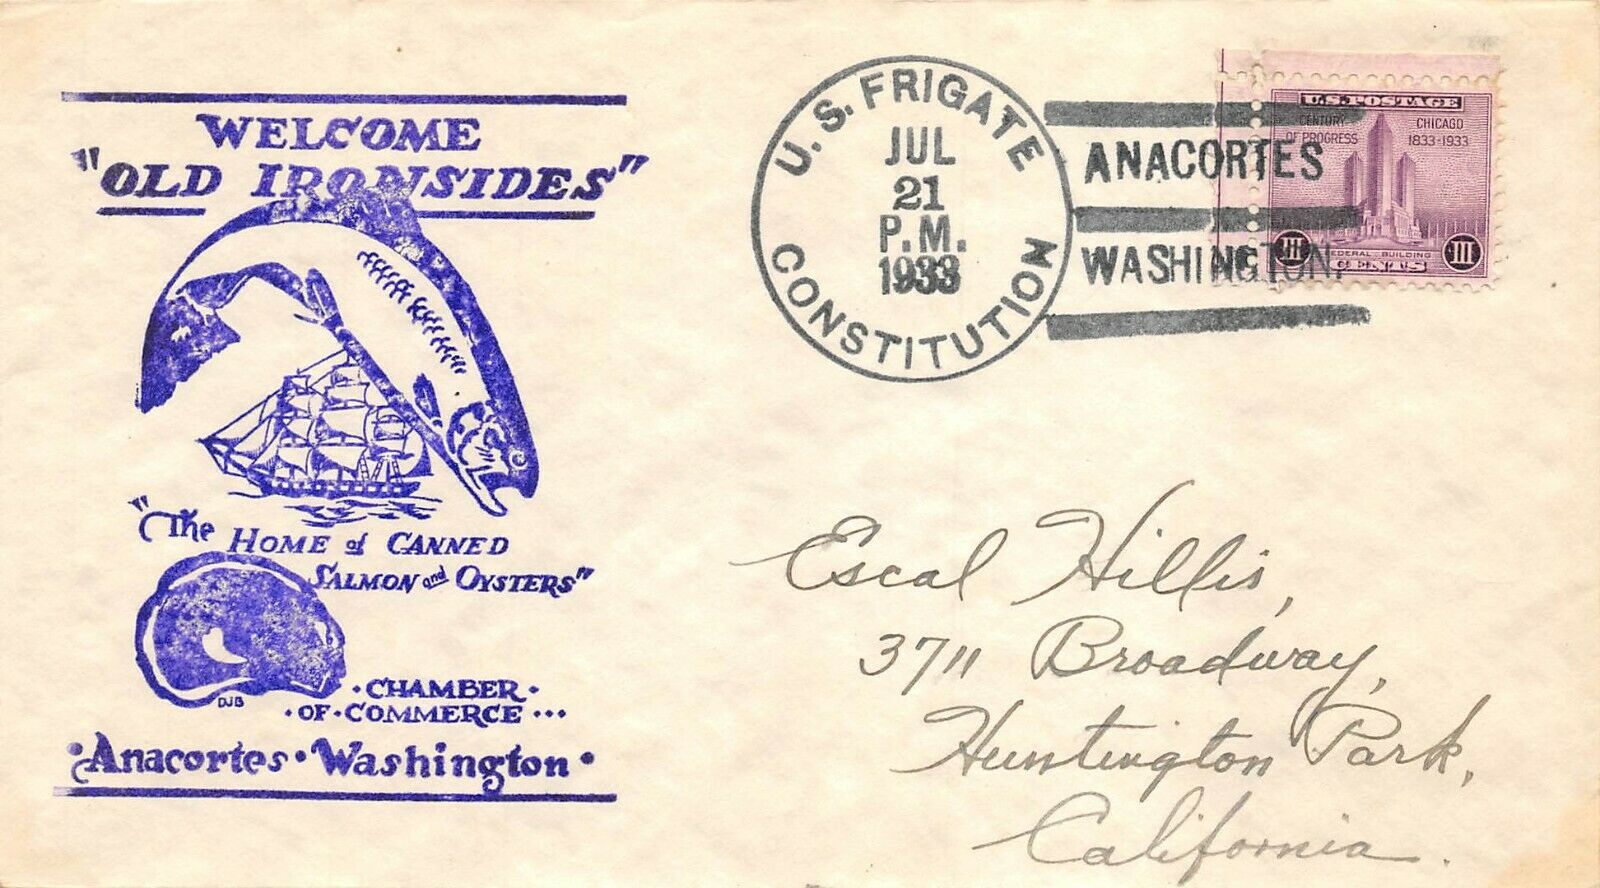 WELCOME
"OLD IRONSIDES"
"The HOME of CANNED
SALMON and OYSTERS"
DJB
·CHAMBER·
·OF·COMMERCE···
·Anacortes·Washington·
U.S. FRIGATE
JUL
21
P.M.
1933
CONSTITUTION
ANACORTES
WASHINGTON.
U.S. POSTAGE
CENTURY OF PROGRESS
CHICAGO 1833-1933
FEDERAL BUILDING
III CENTS III
Escal Hillis,
3711 Broadway,
Huntington Park,
California.